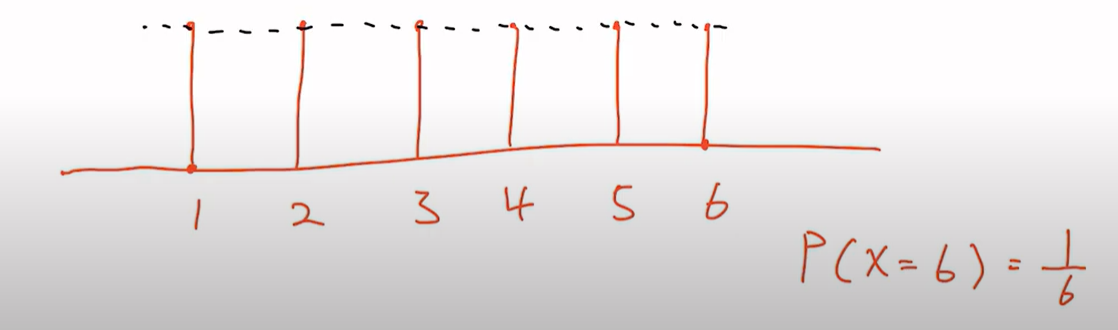 1 2 3 4 5 6
P(X=6) = 1/6